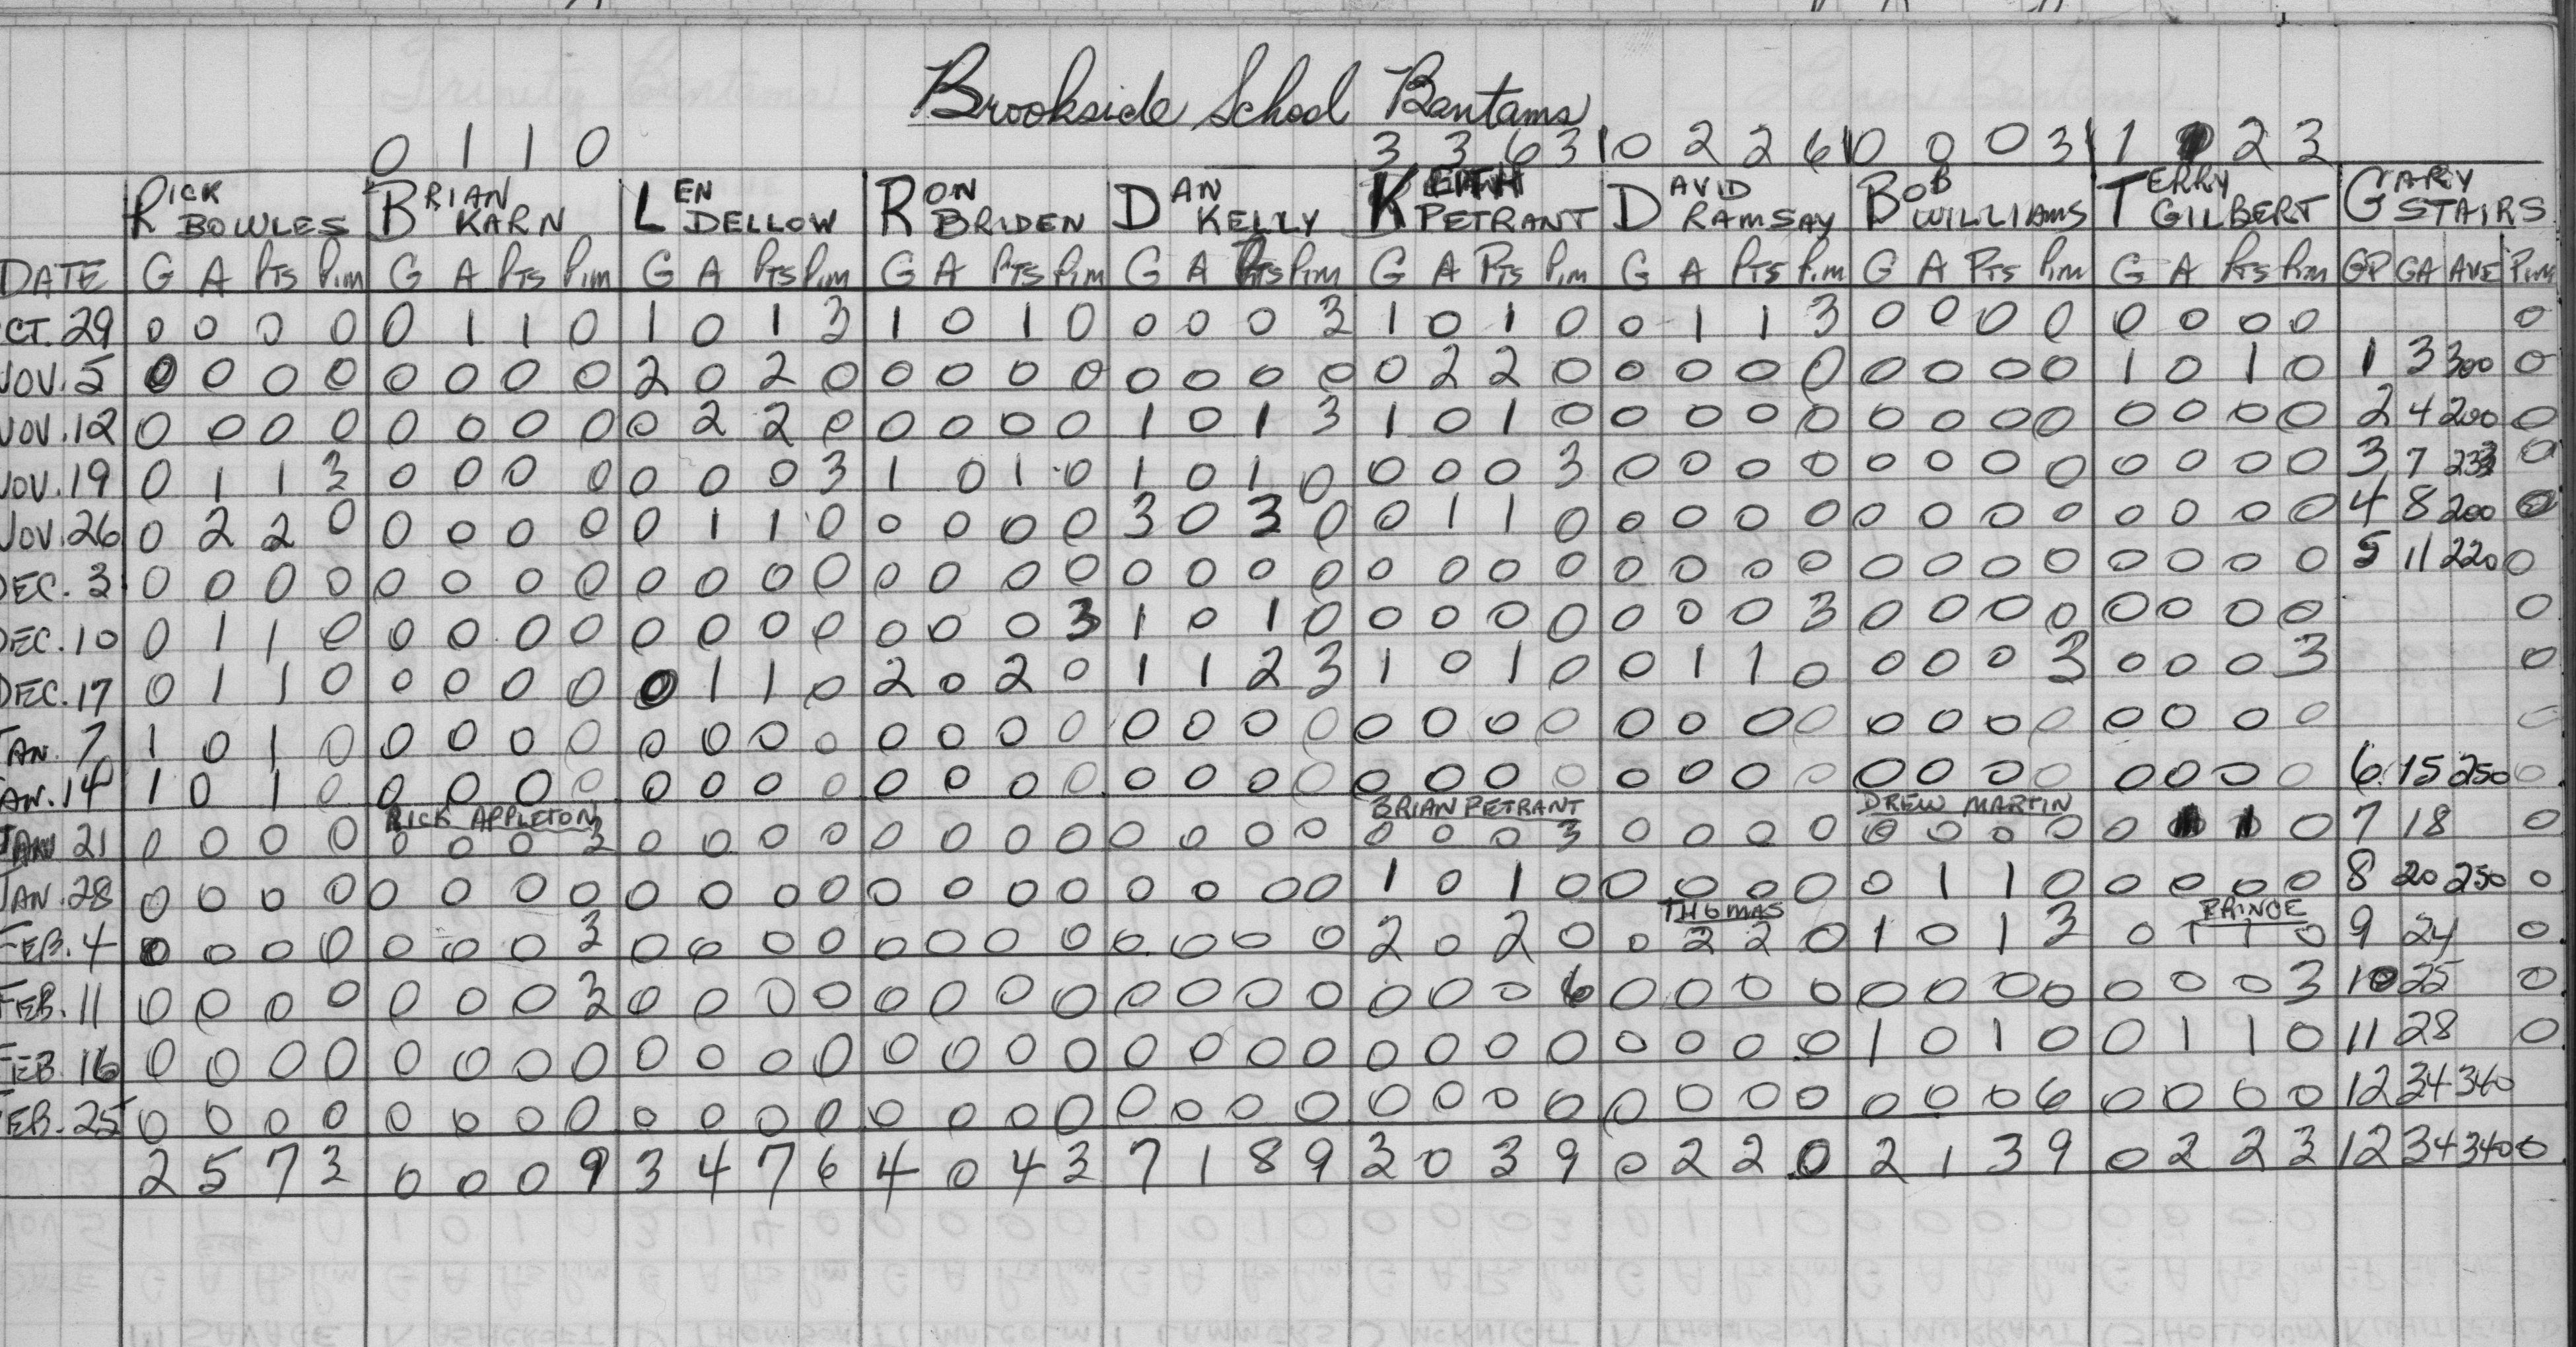 Brookside School Bantams
0 1 1 0 3 3 6 3 0 2 2 6 0 0 0 3 1 2 3
RICK BOWLES BRIAN KARN LEN DELLOW RON BRIDEN DAN KELLY KEITH PETRANT DAVID RAMSAY BOB WILLIAMS TERRY GILBERT GARY STAIRS
DATE G A PTS Pim G A PTS Pim G A PTS Pim G A PTS Pim G A PTS Pim G A PTS Pim G A PTS Pim G A PTS Pim G A PTS Pim GP GA AVE Pim
CT. 29 0 0 0 0 0 1 1 0 1 0 1 3 1 0 1 0 0 0 0 3 1 0 1 0 0 1 1 3 0 0 0 0 0 0 0 0 0
NOV. 5 0 0 0 0 0 0 0 0 2 0 2 0 0 0 0 0 0 0 0 0 0 2 2 0 0 0 0 0 0 0 0 0 1 0 1 0 1 3 300 0
NOV. 12 0 0 0 0 0 0 0 0 0 2 2 0 0 0 0 0 1 0 1 3 1 0 1 0 0 0 0 0 0 0 0 0 0 0 0 0 2 4 200 0
NOV. 19 0 1 1 3 0 0 0 0 0 0 0 3 1 0 1 0 1 0 1 0 0 0 0 3 0 0 0 0 0 0 0 0 0 0 0 0 3 7 233 0
NOV. 26 0 2 2 0 0 0 0 0 0 1 1 0 0 0 0 0 3 0 3 0 0 1 1 0 0 0 0 0 0 0 0 0 0 0 0 0 4 8 200 0
DEC. 3 0 0 0 0 0 0 0 0 0 0 0 0 0 0 0 0 0 0 0 0 0 0 0 0 0 0 0 0 0 0 0 0 0 0 0 0 5 11 220 0
DEC. 10 0 1 1 0 0 0 0 0 0 0 0 0 0 0 0 3 1 0 1 0 0 0 0 0 0 0 0 3 0 0 0 0 0 0 0 0 0
DEC. 17 0 1 1 0 0 0 0 0 0 1 1 0 2 0 2 0 1 1 2 3 1 0 1 0 0 1 1 0 0 0 0 3 0 0 0 3 0
JAN. 7 1 0 1 0 0 0 0 0 0 0 0 0 0 0 0 0 0 0 0 0 0 0 0 0 0 0 0 0 0 0 0 0 0 0 0 0 0
JAN. 14 1 0 1 0 0 0 0 0 0 0 0 0 0 0 0 0 0 0 0 0 0 0 0 0 0 0 0 0 0 0 0 0 0 0 0 0 6 15 250 0
RICK APPLETON BRIAN PETRANT DREW MARTIN
JAN 21 0 0 0 0 0 0 0 3 0 0 0 0 0 0 0 0 0 0 0 0 0 0 0 3 0 0 0 0 0 0 0 0 0 1 1 0 7 18 0
JAN. 28 0 0 0 0 0 0 0 0 0 0 0 0 0 0 0 0 0 0 0 0 1 0 1 0 0 0 0 0 0 1 1 0 0 0 0 0 8 20 250 0
THOMAS PRINCE
FEB. 4 0 0 0 0 0 0 0 3 0 0 0 0 0 0 0 0 0 0 0 0 2 0 2 0 0 2 2 0 1 0 1 3 0 1 1 0 9 24 0
FEB. 11 0 0 0 0 0 0 0 3 0 0 0 0 0 0 0 0 0 0 0 0 0 0 0 6 0 0 0 0 0 0 0 0 0 0 0 3 10 25 0
FEB. 16 0 0 0 0 0 0 0 0 0 0 0 0 0 0 0 0 0 0 0 0 0 0 0 0 0 0 0 0 1 0 1 0 0 1 1 0 11 28 0
FEB. 25 0 0 0 0 0 0 0 0 0 0 0 0 0 0 0 0 0 0 0 0 0 0 0 0 0 0 0 0 0 0 0 6 0 0 0 0 12 34 340
2 5 7 3 0 0 0 9 3 4 7 6 4 0 4 3 7 1 8 9 3 0 3 9 0 2 2 0 2 1 3 9 0 2 2 3 12 34 340 0